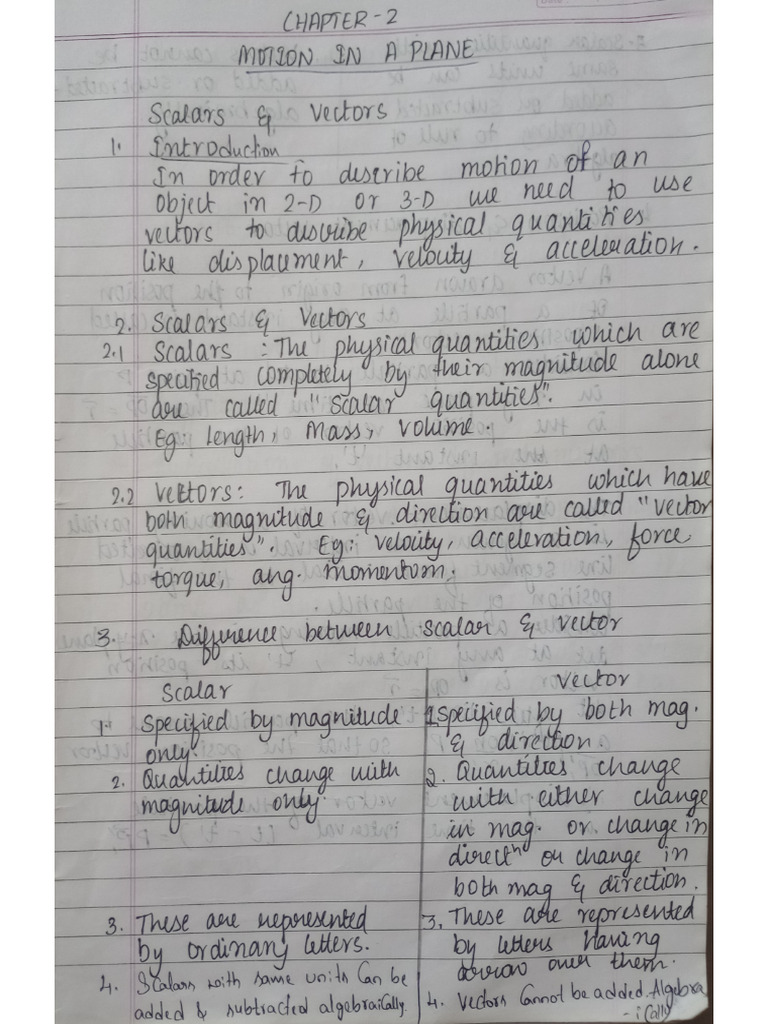 CHAPTER-2
MOTION IN A PLANE
Scalars & Vectors
1. Introduction
In order to describe motion of an
object in 2-D or 3-D we need to use
vectors to describe physical quantities
like displacement, velocity & acceleration.
2. Scalars & Vectors
2.1 Scalars : The physical quantities which are
specified completely by their magnitude alone
are called "Scalar quantities".
Eg: length, Mass, Volume.
2.2 Vectors: The physical quantities which have
both magnitude & direction are called "vector
quantities". Eg: velocity, acceleration, force,
torque, ang. momentum.
3. Difference between scalar & vector
Scalar
1. Specified by magnitude
only.
2. Quantities change with
magnitude only.
3. These are represented
by ordinary letters.
4. Scalars with same units can be
added & subtracted algebraically.
Vector
1. Specified by both mag.
& direction.
2. Quantities change
with either change
in mag. or change in
directn or change in
both mag & direction.
3. These are represented
by letters having
arrow over them.
4. Vectors cannot be added Algebra
- ically